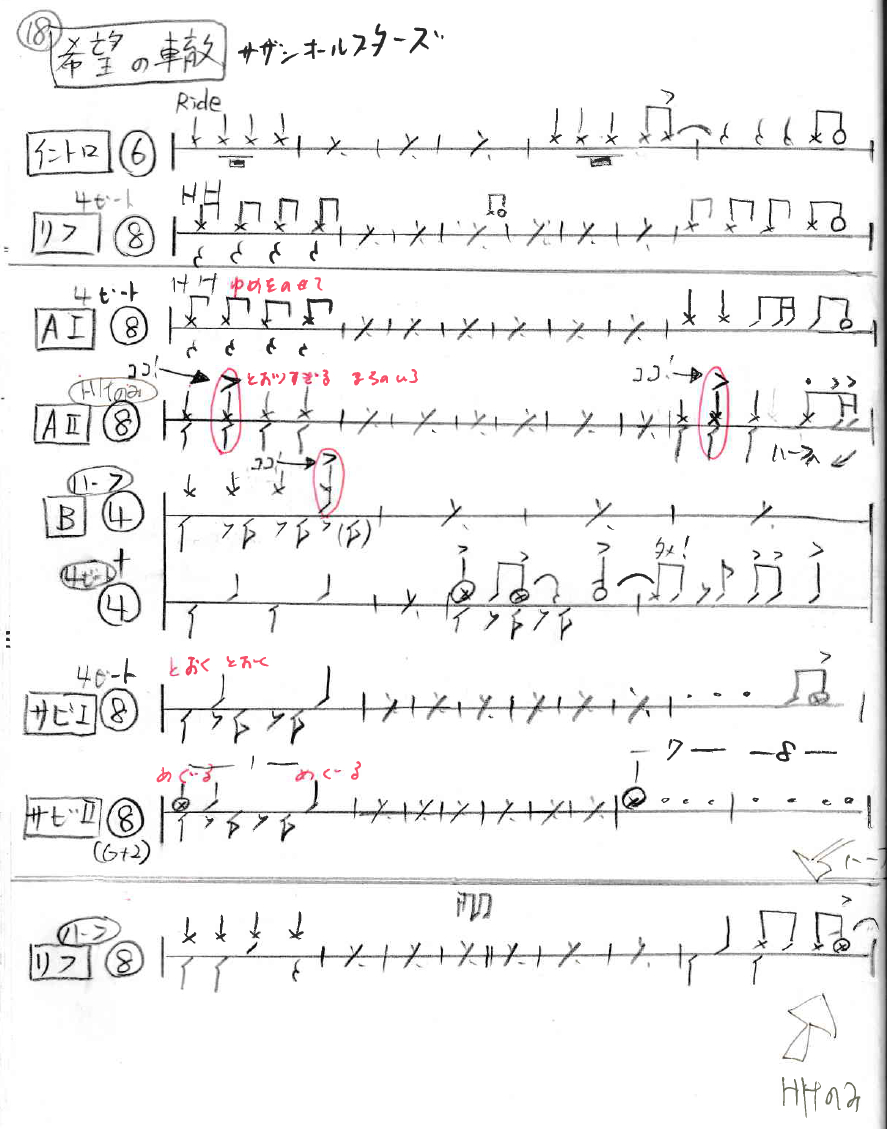 18 希望の轍 サザンオールスターズ
Ride
イントロ 6
4ビート HH
リフ 8
4ビート HH ゆめをのせて
AⅠ 8
ココ! とおりすぎる ココ!
HHのみ
AⅡ 8
ハーフ
ハーフ ココ!
B 4
4ビート タメ!
4
4ビート とおく とおく
サビⅠ 8
7 8
めぐーる 1 めぐーる
サビⅡ 8
(6+2)
ハーフ
ハーフ
リフ 8
HHのみ